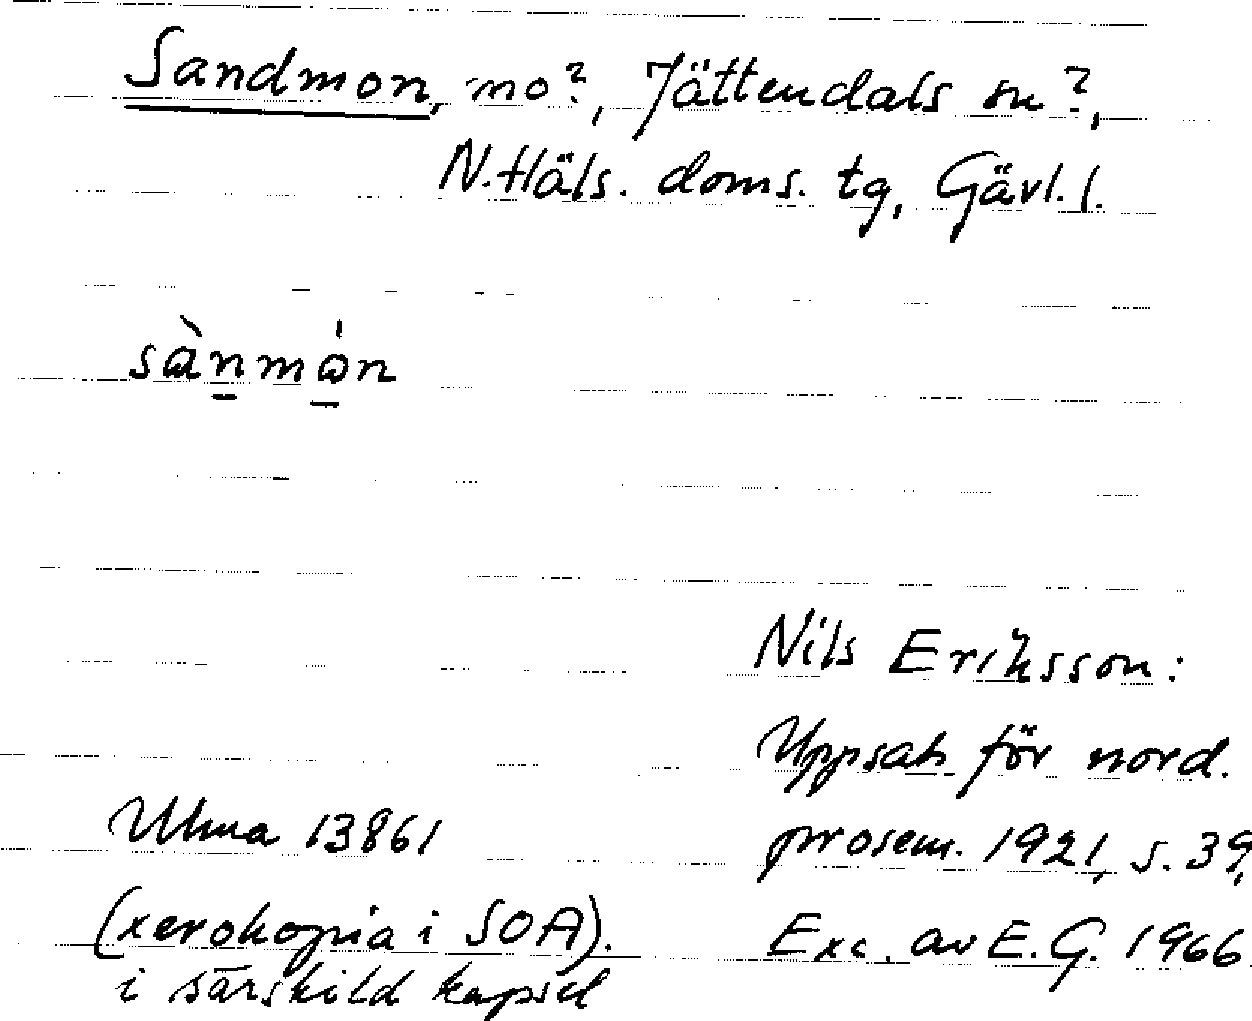 Sandmon, mo?, Jättendals sn?,
N. Häls. doms. tg, Gävl. l.
sànmòn
Nils Eriksson:
Uppsats för nord.
prosem. 1921, s. 39,
Exc. av E. G. 1966
Ulma 13861
(xerokopia i SOA).
i särskild kapsel